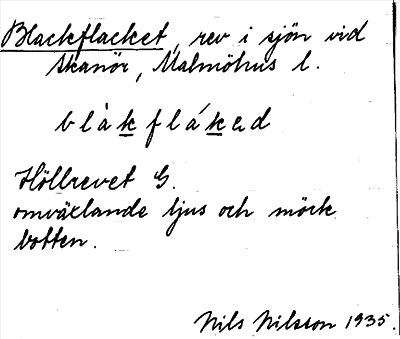 Blackflacket, rev i sjön vid
Skanör, Malmöhus l.
blàkflákəd
Höllrevet G.
omväxlande ljus och mörk
botten.
Nils Nilsson 1935.